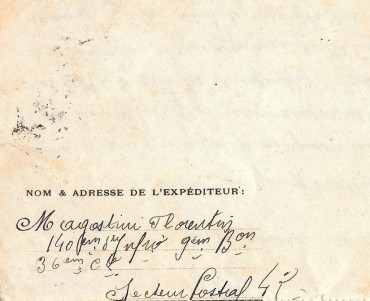 NOM & ADRESSE DE L'EXPÉDITEUR:
Magostini Florentin
140 em d'Infrie 9em Bon
36em Cie
Secteur Postal 42